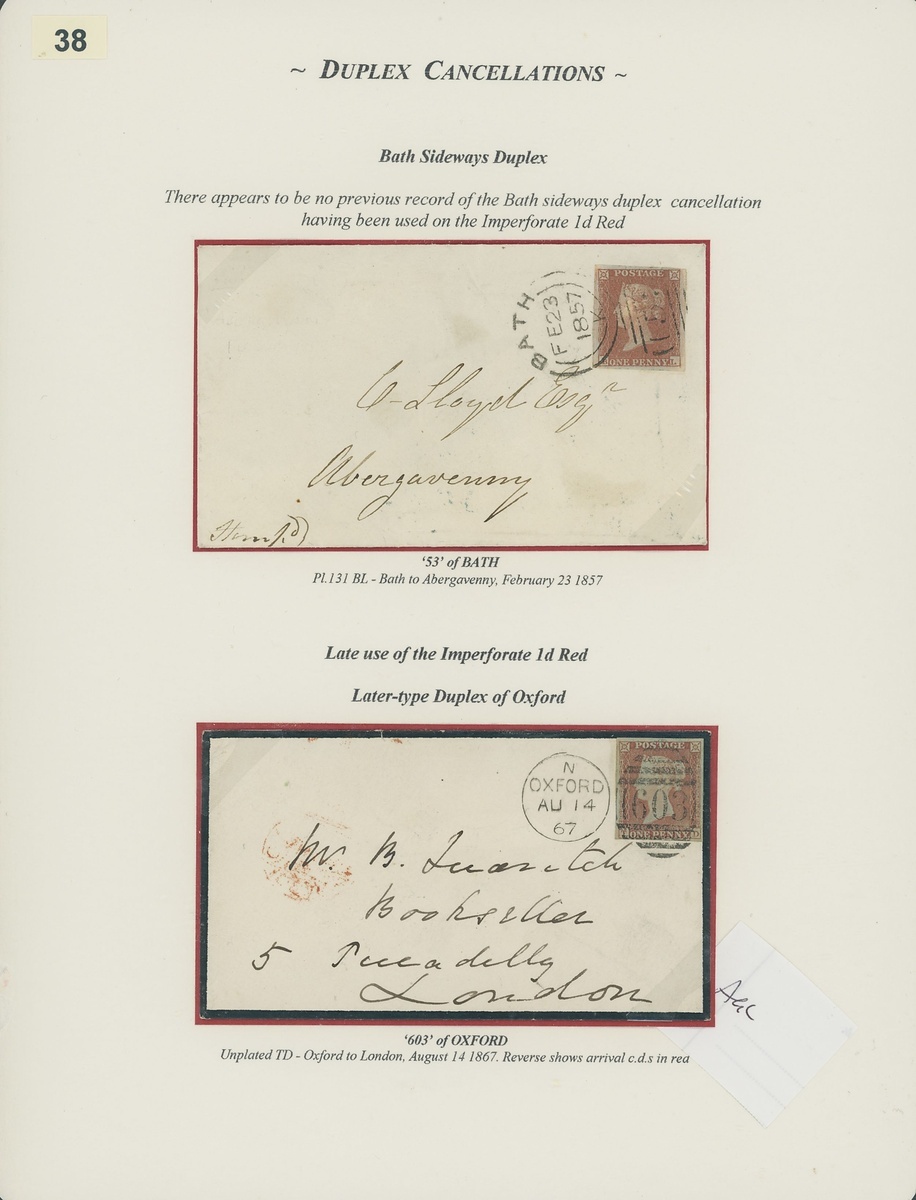 38
~ DUPLEX CANCELLATIONS ~
Bath Sideways Duplex
There appears to be no previous record of the Bath sideways duplex cancellation
having been used on the Imperforate 1d Red
BATH
FE23
1857
K
POSTAGE
53
B ONE PENNY L
C Lloyd Esqr
Abergavenny
'53' of BATH
Pl.131 BL - Bath to Abergavenny, February 23 1857
Late use of the Imperforate 1d Red
Later-type Duplex of Oxford
N
OXFORD
AU 14
67
POSTAGE
603
ONE PENNY D
Mr. B. Quaritch
Bookseller
5 Piccadilly
London
'603' of OXFORD
Unplated TD - Oxford to London, August 14 1867. Reverse shows arrival c.d.s in red